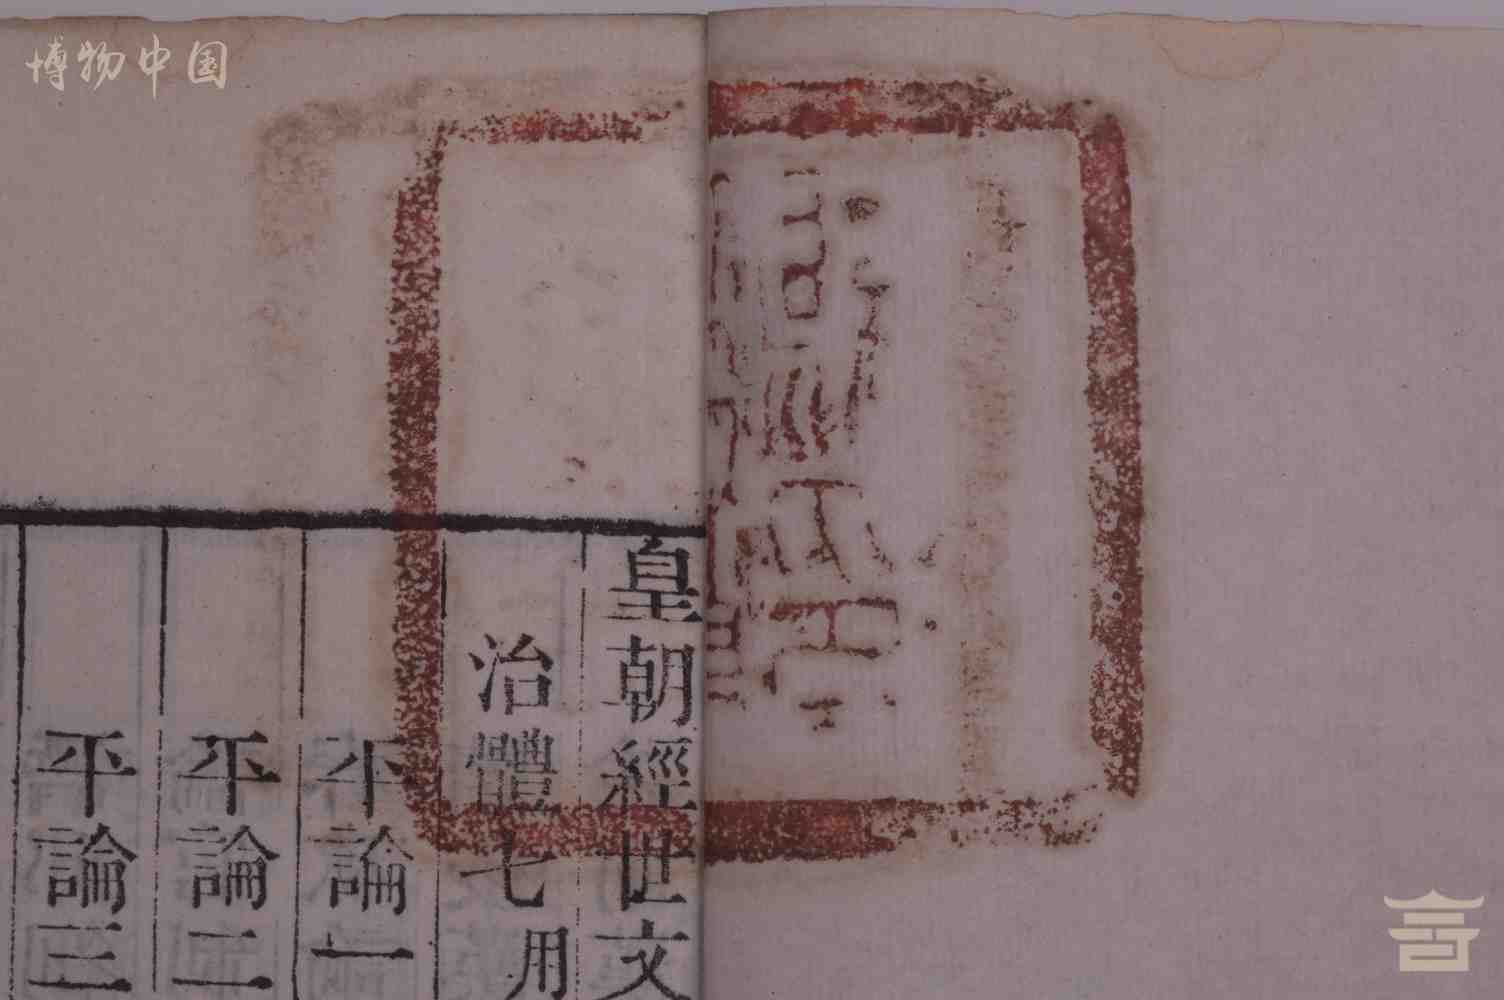 博物中国
皇朝經世文
治體七用
平論一
平論二
平論三